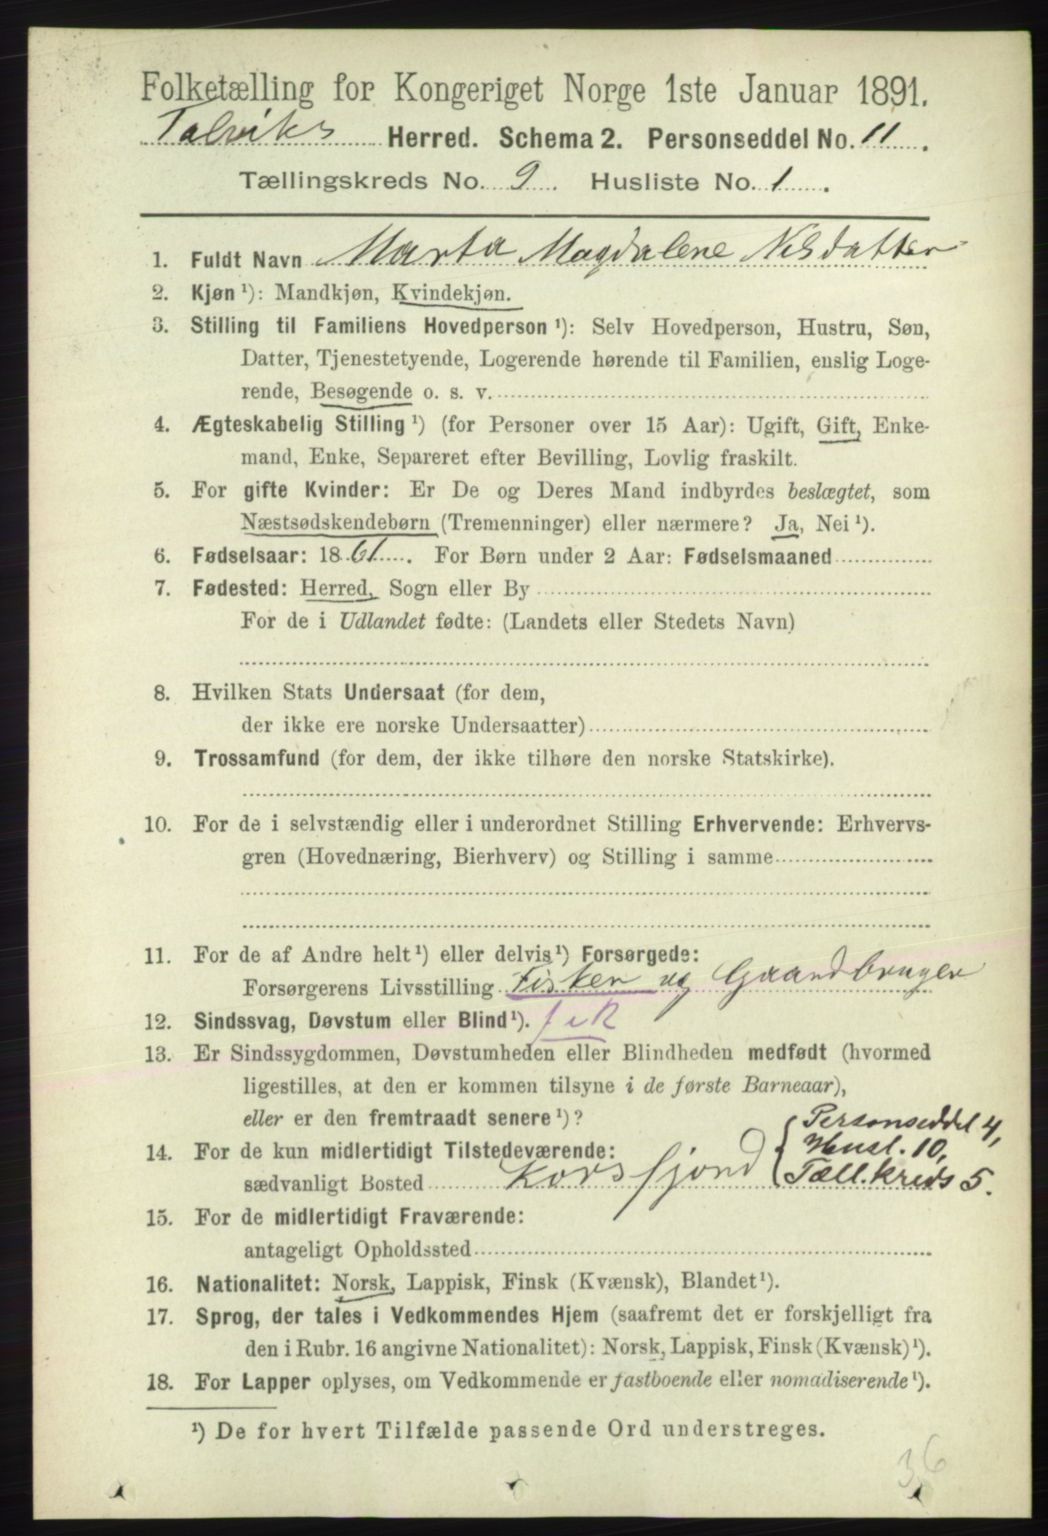 Folketælling for Kongeriget Norge 1ste Januar 1891.
Talviks Herred. Schema 2. Personseddel No. 11.
Tællingskreds No. 9. Husliste No. 1.
1. Fuldt Navn Marta Magdalene Nilsdatter
2. Kjøn ¹): Mandkjøn, Kvindekjøn.
3. Stilling til Familiens Hovedperson ¹): Selv Hovedperson, Hustru, Søn,
Datter, Tjenestetyende, Logerende hørende til Familien, enslig Loge-
rende, Besøgende o. s. v.
4. Ægteskabelig Stilling ¹) (for Personer over 15 Aar): Ugift, Gift, Enke-
mand, Enke, Separeret efter Bevilling, Lovlig fraskilt.
5. For gifte Kvinder: Er De og Deres Mand indbyrdes beslægtet, som
Næstsødskendebørn (Tremenninger) eller nærmere? Ja, Nei ¹).
6. Fødselsaar: 1861. For Børn under 2 Aar: Fødselsmaaned
7. Fødested: Herred, Sogn eller By
For de i Udlandet fødte: (Landets eller Stedets Navn)
8. Hvilken Stats Undersaat (for dem,
der ikke ere norske Undersaatter)
9. Trossamfund (for dem, der ikke tilhøre den norske Statskirke).
10. For de i selvstændig eller i underordnet Stilling Erhvervende: Erhvervs-
gren (Hovednæring, Bierhverv) og Stilling i samme
11. For de af Andre helt ¹) eller delvis ¹) Forsørgede:
Forsørgerens Livsstilling Fisker og Gaardbruger
12. Sindssvag, Døvstum eller Blind ¹).
13. Er Sindssygdommen, Døvstumheden eller Blindheden medfødt (hvormed
ligestilles, at den er kommen tilsyne i de første Barneaar),
eller er den fremtraadt senere ¹)?
14. For de kun midlertidigt Tilstedeværende:
sædvanligt Bosted Korsfjord
Personseddel 4,
Husl. 10,
Tæll. kreds 5.
15. For de midlertidigt Fraværende:
antageligt Opholdssted
16. Nationalitet: Norsk, Lappisk, Finsk (Kvænsk), Blandet ¹).
17. Sprog, der tales i Vedkommendes Hjem (saafremt det er forskjelligt fra
den i Rubr. 16 angivne Nationalitet): Norsk, Lappisk, Finsk (Kvænsk) ¹).
18. For Lapper oplyses, om Vedkommende er fastboende eller nomadiserende ¹).
¹) De for hvert Tilfælde passende Ord understreges.
36